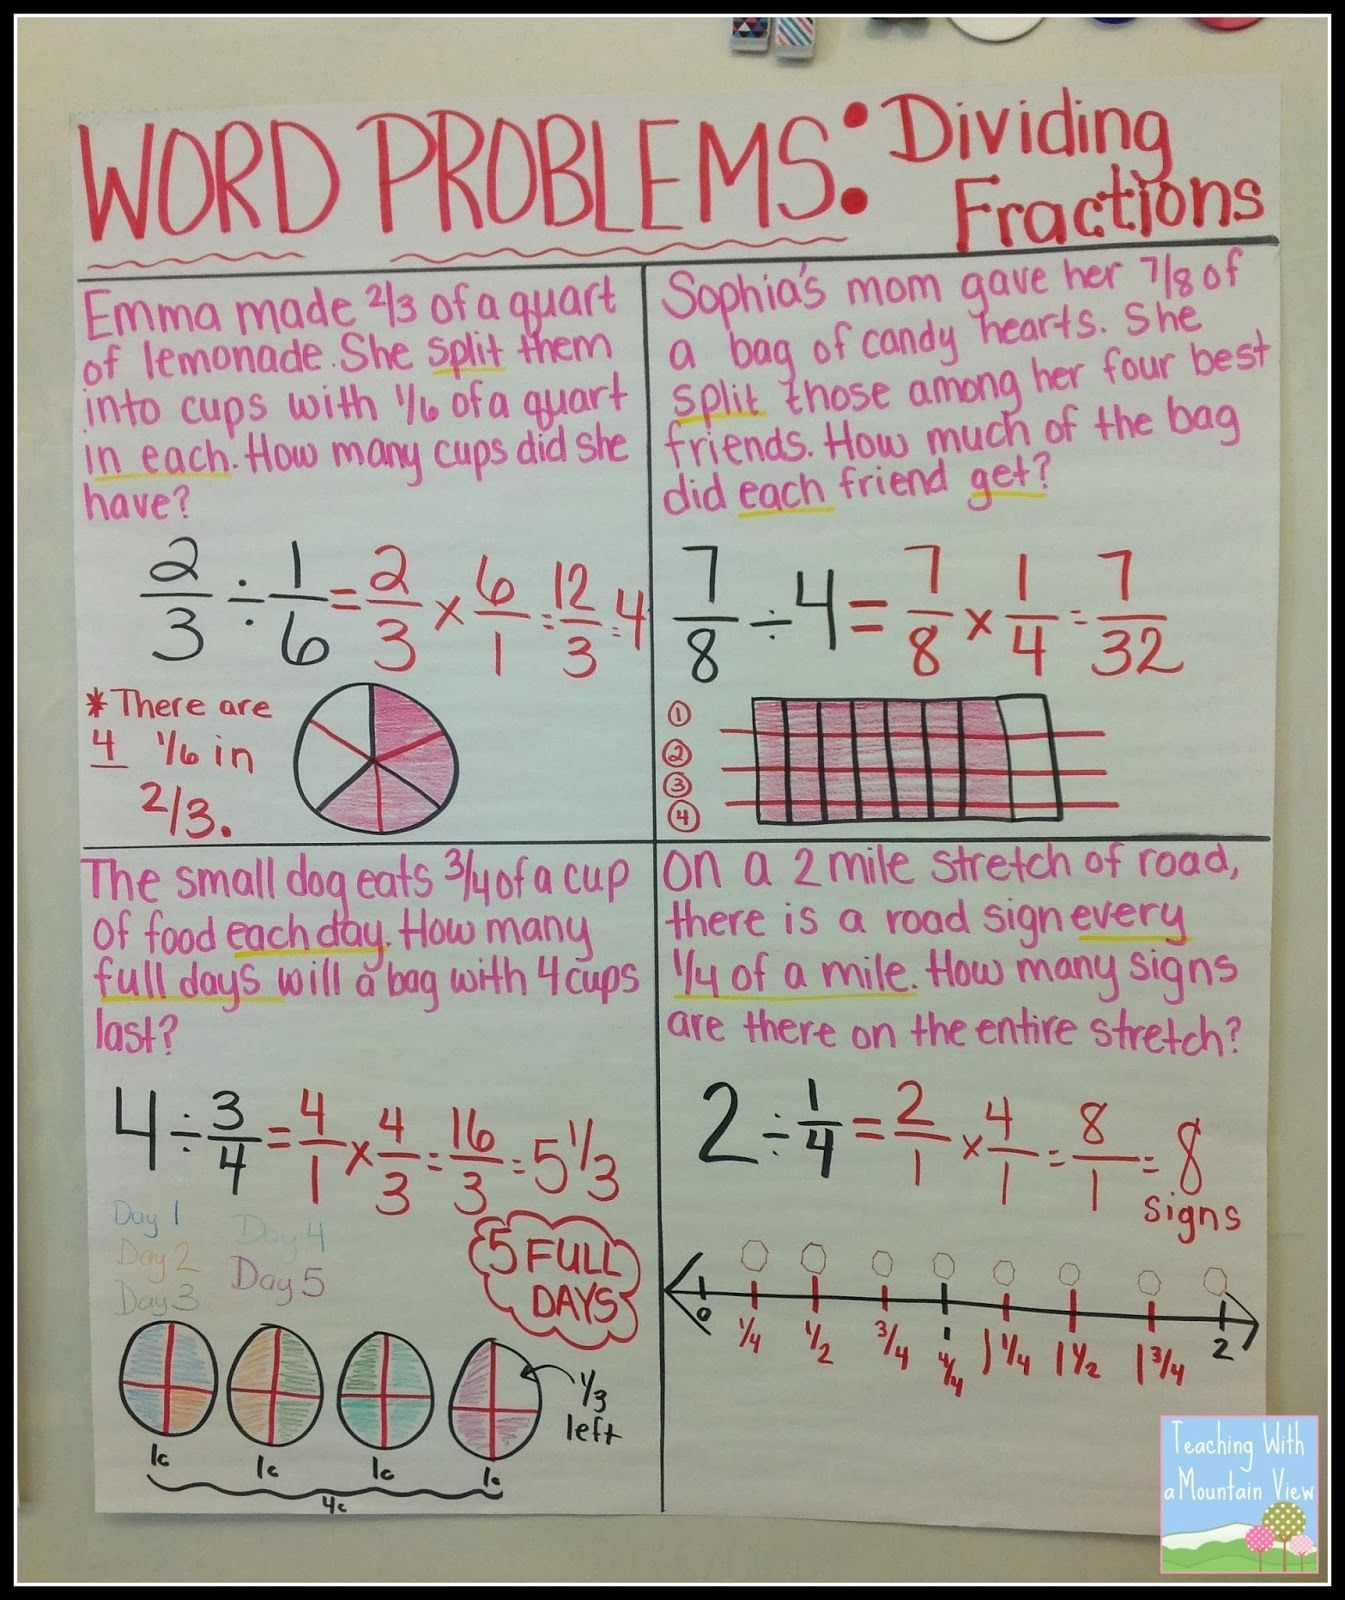 WORD PROBLEMS: Dividing
Fractions
Emma made 2/3 of a quart
of lemonade. She split them
into cups with 1/6 of a quart
in each. How many cups did she
have?
2/3 ÷ 1/6 = 2/3 × 6/1 = 12/3 = 4
* There are
4 1/6 in
2/3.
Sophia's mom gave her 7/8 of
a bag of candy hearts. She
split those among her four best
friends. How much of the bag
did each friend get?
7/8 ÷ 4 = 7/8 × 1/4 = 7/32
1
2
3
4
The small dog eats 3/4 of a cup
of food each day. How many
full days will a bag with 4 cups
last?
4 ÷ 3/4 = 4/1 × 4/3 = 16/3 = 5 1/3
Day 1 Day 4
Day 2 Day 5
Day 3
5 FULL
DAYS
1/3
left
1c 1c 1c 1c
4c
On a 2 mile stretch of road,
there is a road sign every
1/4 of a mile. How many signs
are there on the entire stretch?
2 ÷ 1/4 = 2/1 × 4/1 = 8/1 = 8
signs
0 1/4 1/2 3/4 1 1 1/4 1 1/2 1 3/4 2
4/4
Teaching With
a Mountain View